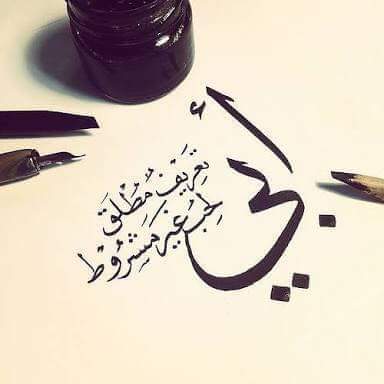 أبي
تعريفٌ مُطْلَق
لِحُبٍّ غير مَشرُوط